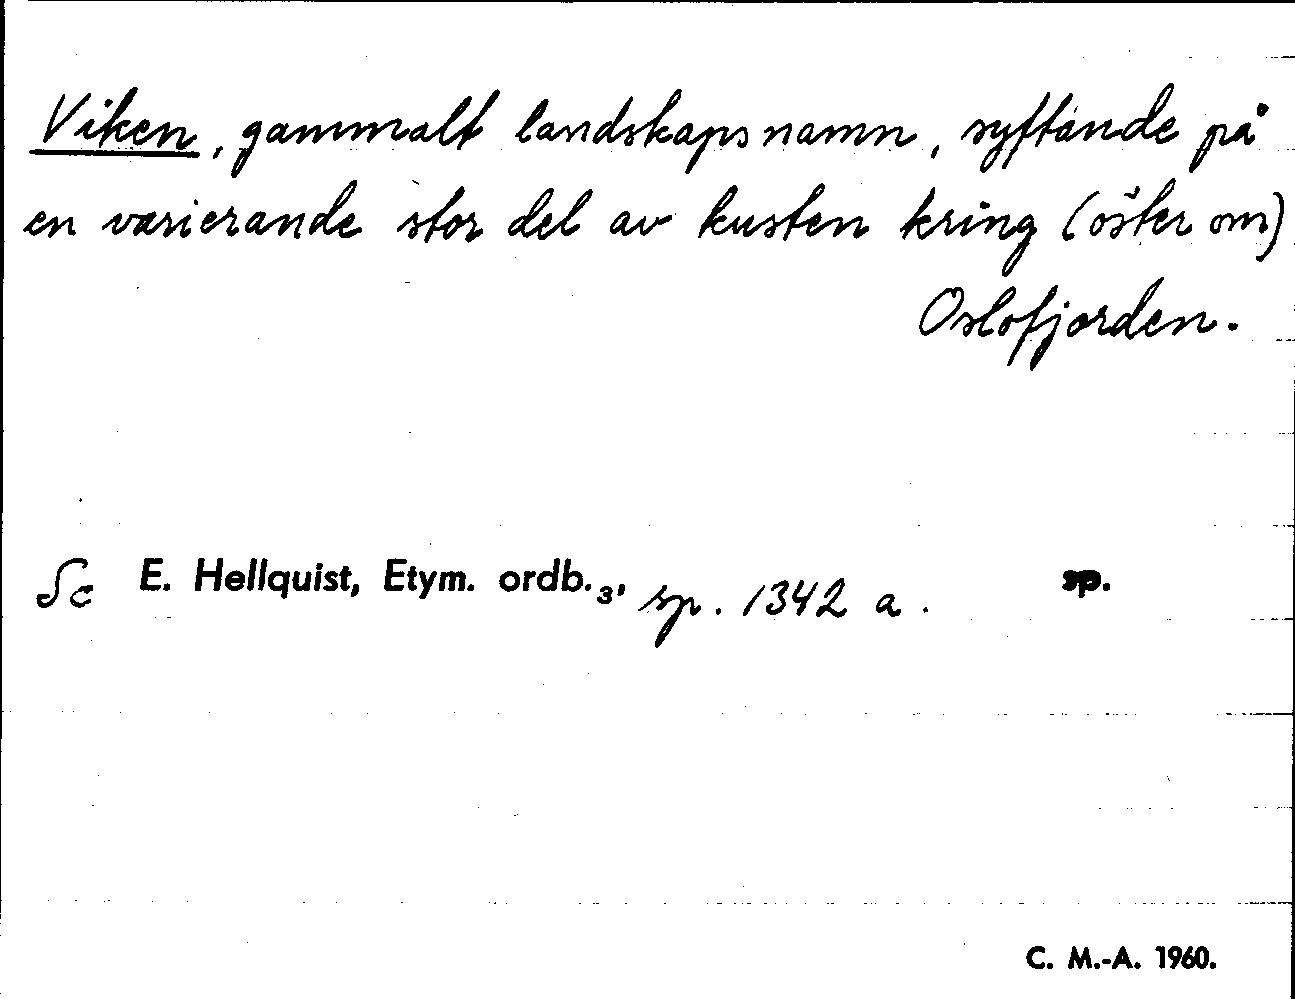 Viken, gammalt landskapsnamn, syftande på
en varierande stor del av kusten kring (öster om)
Oslofjorden.
Se E. Hellquist, Etym. ordb.₃, sp. 1342 a. sp.
C. M.-A. 1960.